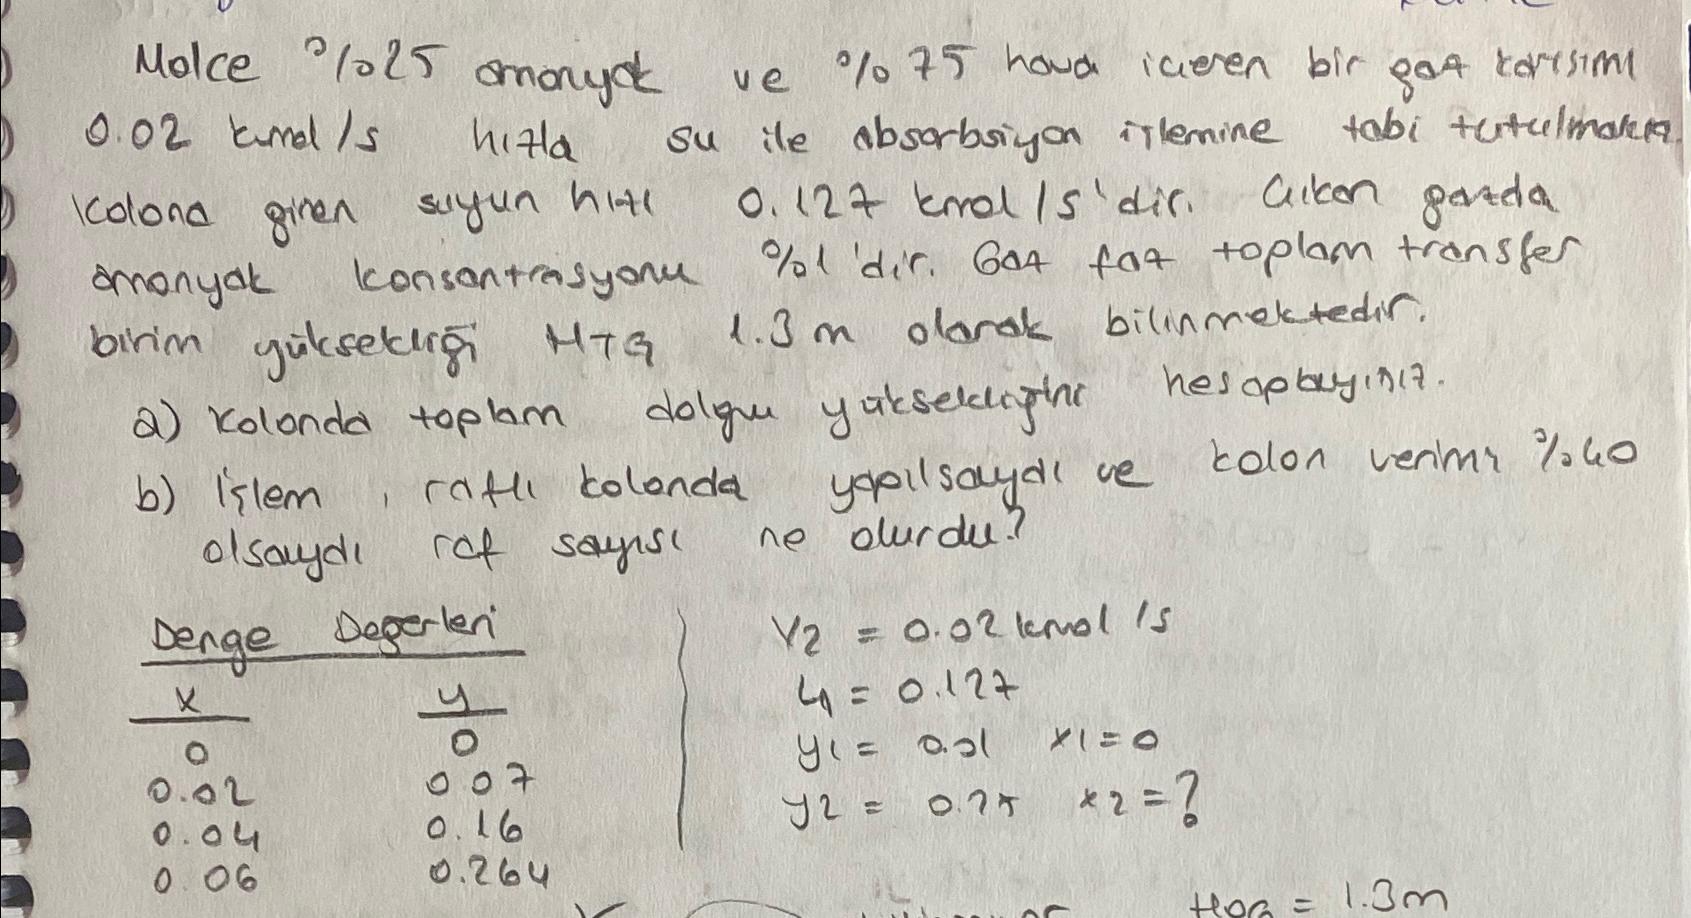 Molce %25 amonyak ve %75 hava içeren bir gaz karışımı
0.02 kmol/s hızla su ile absorbsiyon işlemine tabi tutulmakta.
Kolona giren suyun hızı 0.127 kmol/s'dir. Çıkan gazda
amonyak konsantrasyonu %1'dir. Gaz faz toplam transfer
birim yüksekliği HTG 1.3m olarak bilinmektedir.
a) Kolonda toplam dolgu yüksekliğini hesaplayınız.
b) İşlem, raflı kolonda yapılsaydı ve kolon verimi %40
olsaydı raf sayısı ne olurdu?
Denge Değerleri
x y
0 0
0.02 0 07
0.04 0.16
0.06 0.264
V2 = 0.02 kmol/s
L1 = 0.127
y1 = 0.01 x1 = 0
y2 = 0.25 x2 = ?
HOG = 1.3m